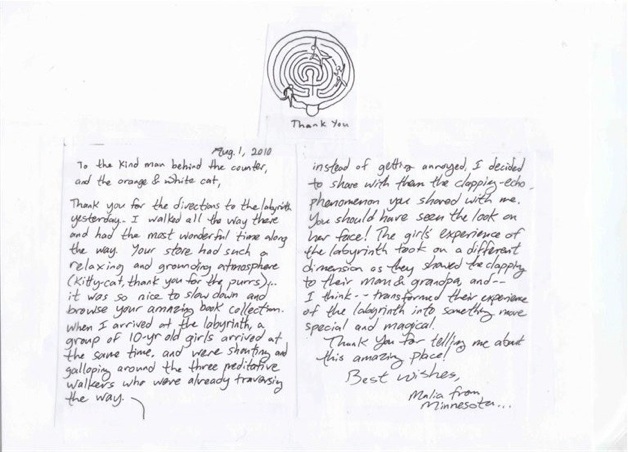 Thank You
Aug. 1, 2010
To the kind man behind the counter,
and the orange & white cat,
Thank you for the directions to the labyrinth
yesterday. I walked all the way there
and had the most wonderful time along
the way. Your store had such a
relaxing and grounding atmosphere
(Kitty-cat, thank you for the purrs)...
it was so nice to slow down and
browse your amazing book collection.
When I arrived at the labyrinth, a
group of 10-yr old girls arrived at
the same time, and were shouting and
galloping around the three meditative
walkers who were already traversing
the way.
instead of getting annoyed, I decided
to share with them the clapping-echo
phenomenon you shared with me.
You should have seen the look on
her face! The girls' experience of
the labyrinth took on a different
dimension as they showed the clapping
to their mom & grandpa, and--
I think-- transformed their experience
of the labyrinth into something more
special and magical.
Thank You for telling me about
this amazing place!
Best wishes,
Malia from
Minnesota...